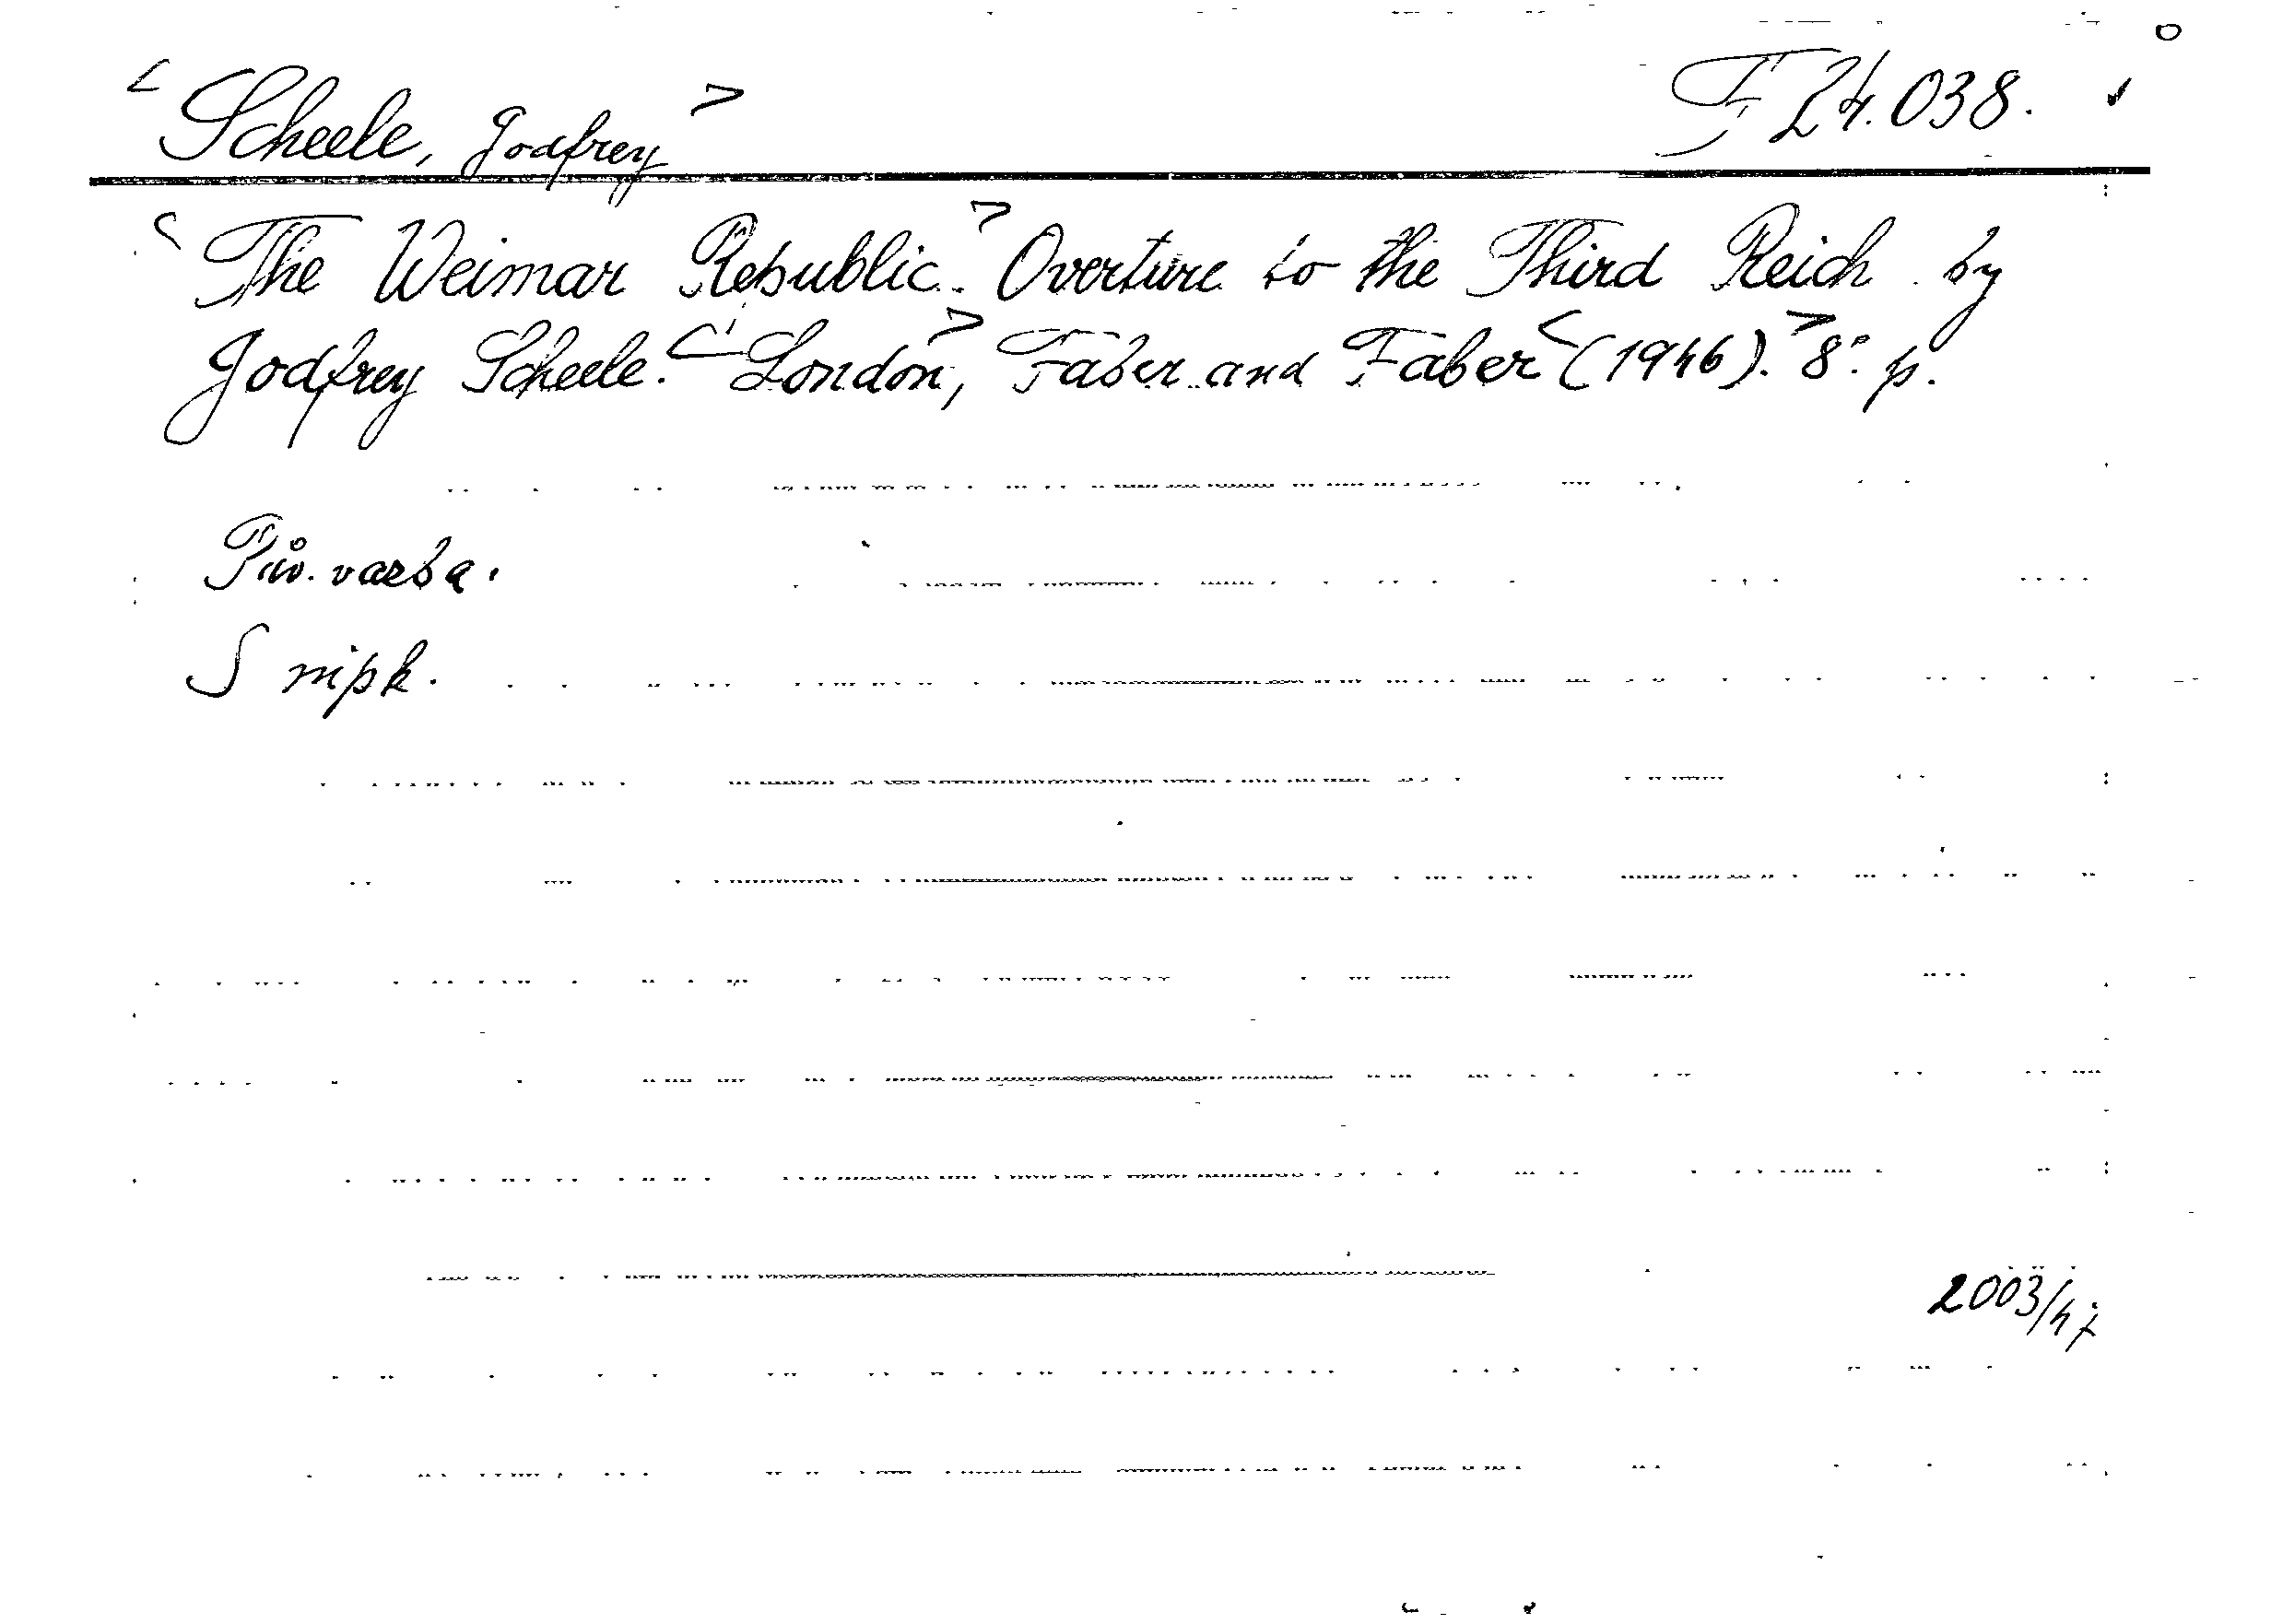 <Scheele, Godfrey> F 24.038.
<The Weimar Republic.> Overture to the Third Reich by
Godfrey Scheele. <London,> Faber and Faber <(1946).> 8°. p.
Pův. vazba.
S mpk.
2003/47